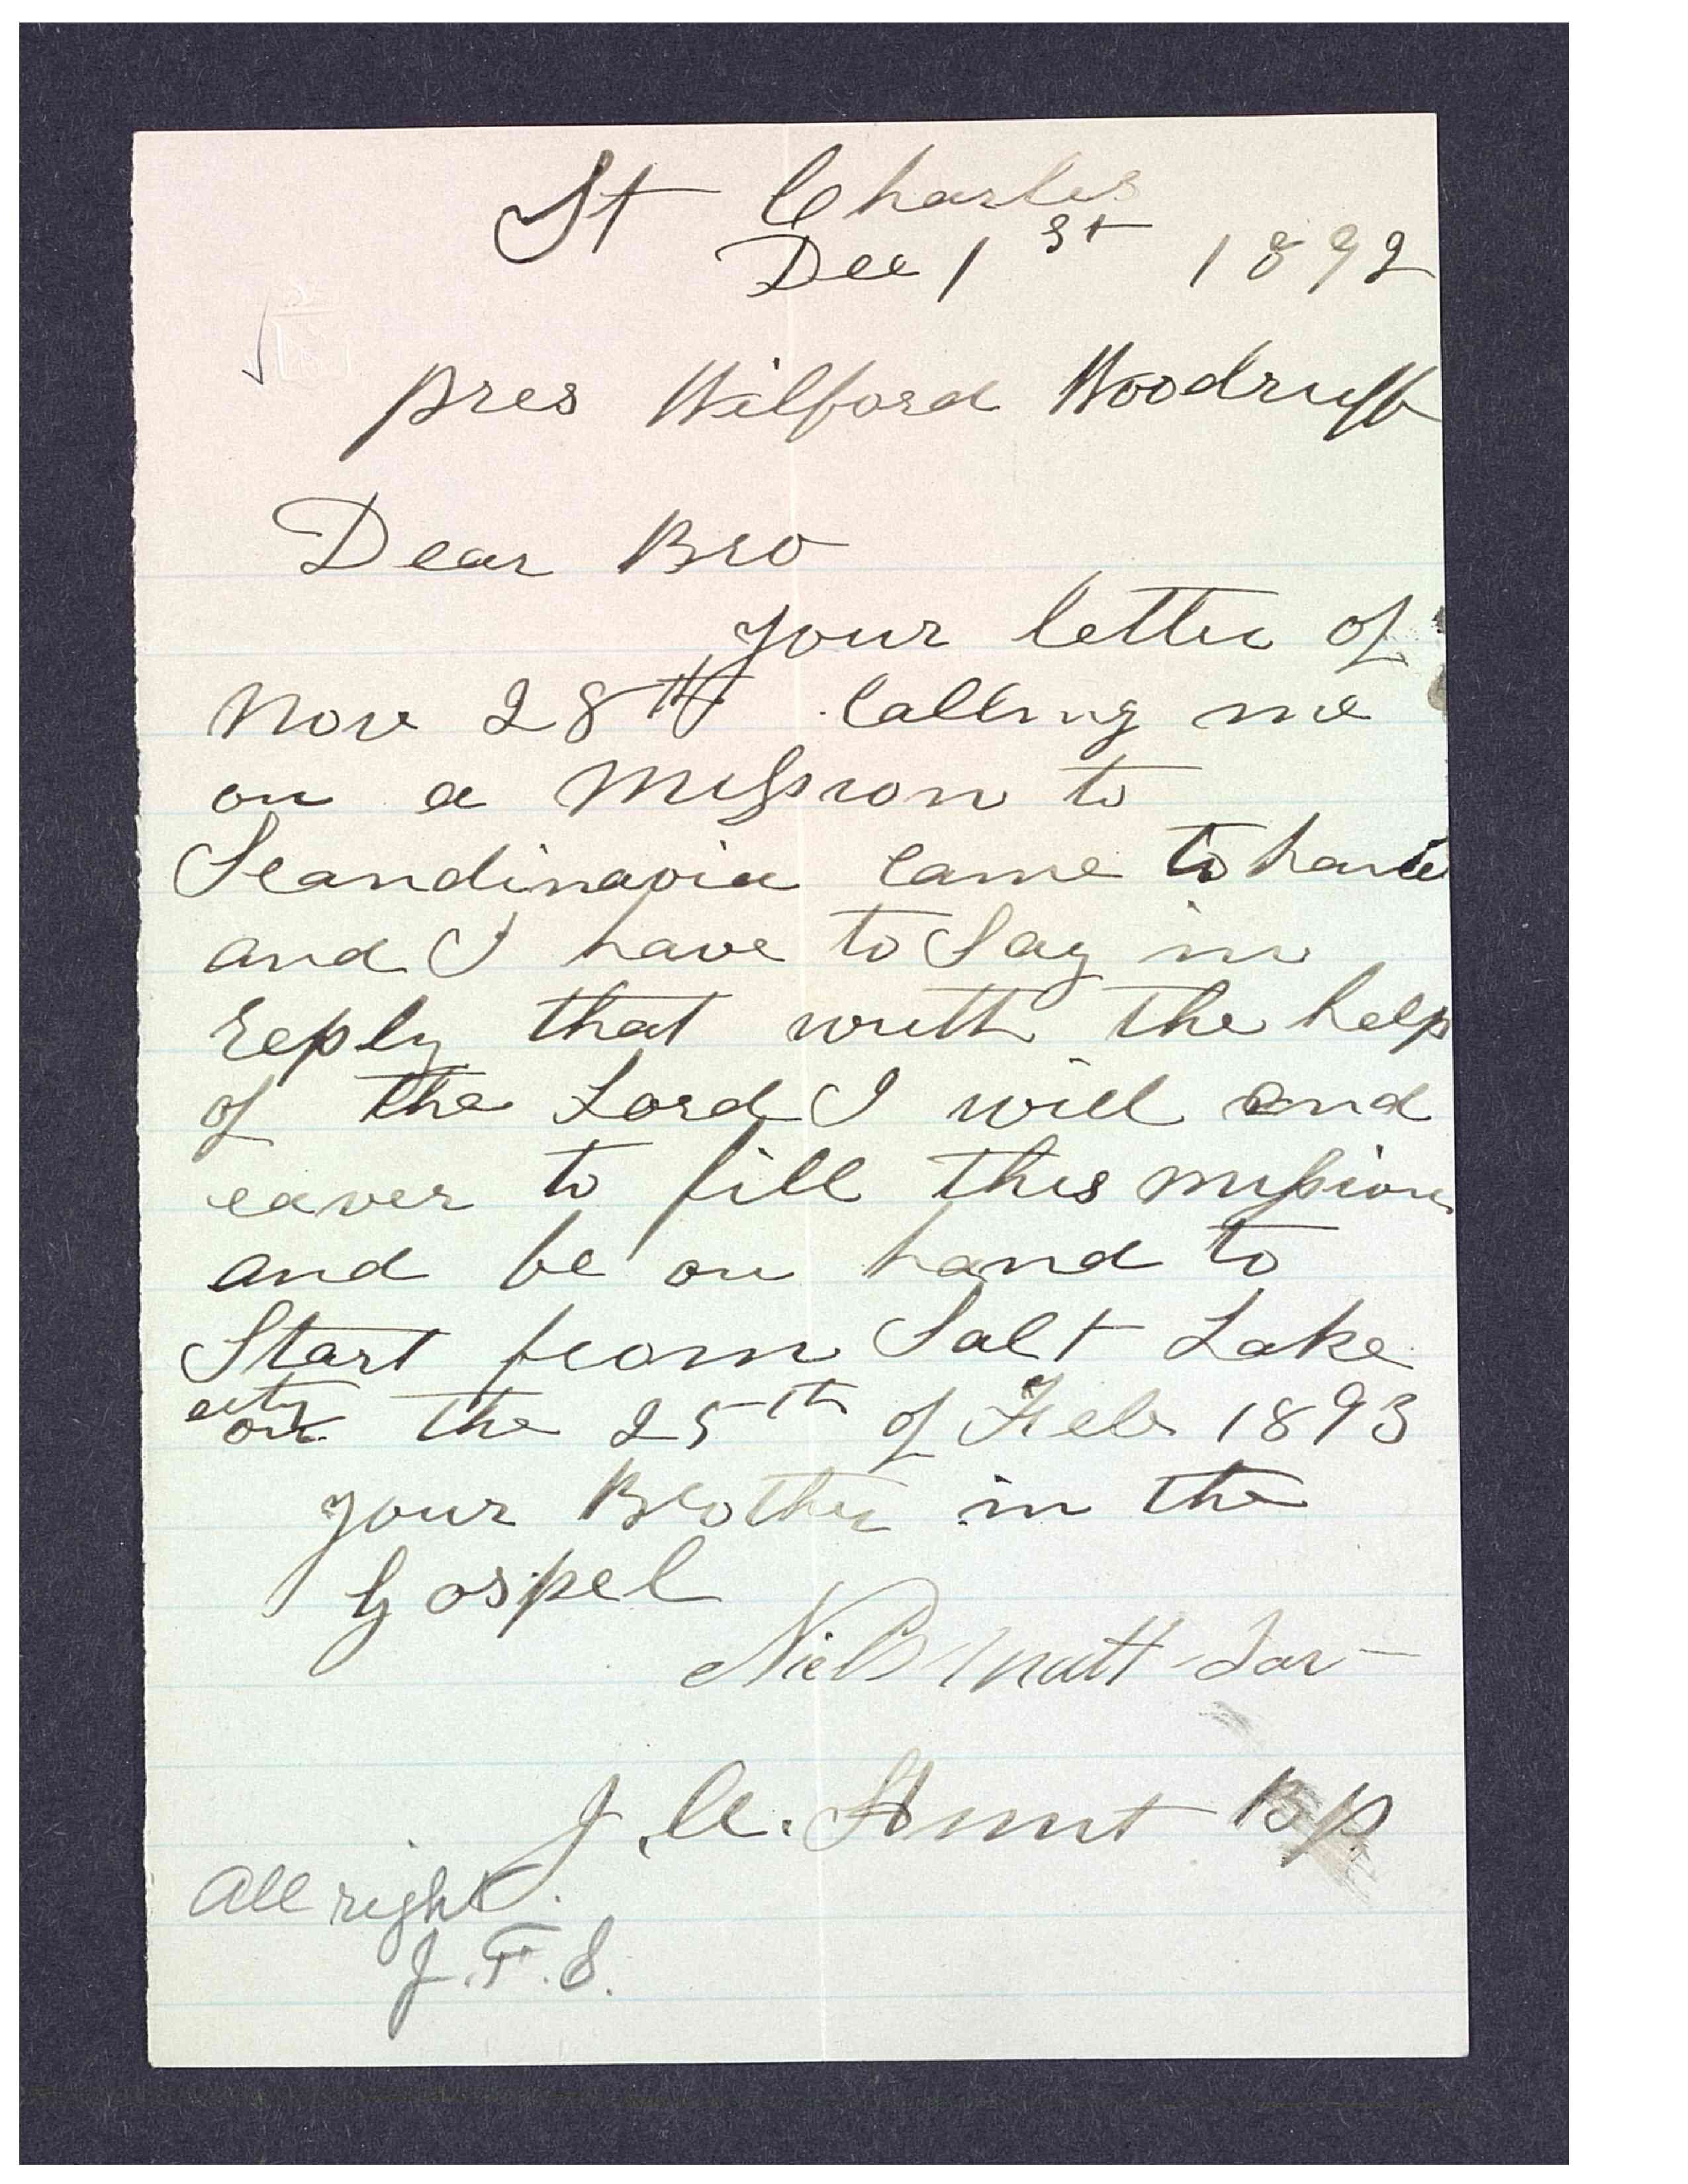 St Charles
Dec 1st 1892
Pres Wilford Woodruff
Dear Bro
your letter of
Nov 28th calling me
on a Mission to
Scandinavia came to hand
and I have to Say in
reply that with the help
of the Lord I will end
eaver to fill this mission
and be on hand to
Start from Salt Lake
city
on the 25th of Feb 1893
your Brother in the
Gospel
Niels
J. A. Hunt Bp
All right.
J. F. S.